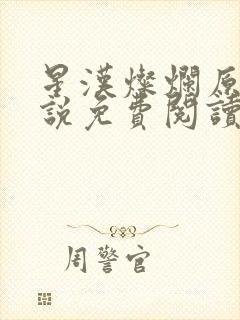 星漢燦爛原
說免費閱讀
周警官